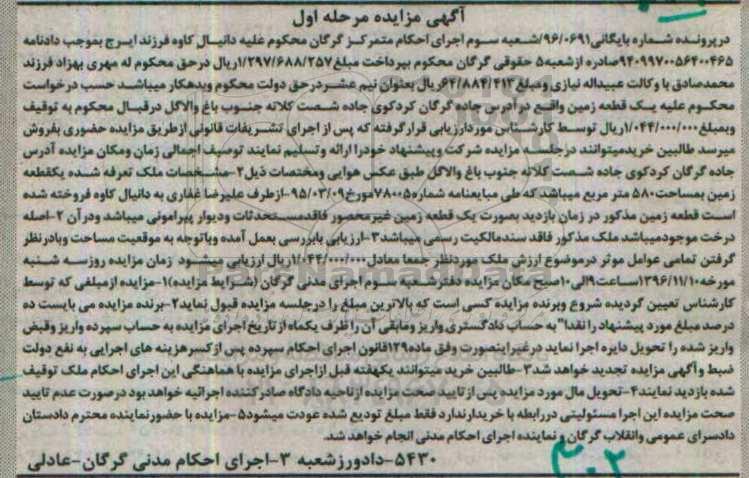 آگهی مزایده مرحله اول
درپرونده شماره بایگانی۹۶/۰۶۹۱/شعبه سوم اجرای احکام متمرکز گرگان محکوم علیه دانیال کاوه فرزند ایرج بموجب دادنامه
۹۴۰۹۹۷۰۰۵۶۴۰۰۴۶۵صادره ازشعبه۵ حقوقی گرگان محکوم بپرداخت مبلغ۱/۲۹۷/۶۸۸/۲۵۷ریال درحق محکوم له مهری بهزاد فرزند
محمدصادق با وکالت عبیداله نیازی ومبلغ ۶۴/۸۸۴/۴۱۳ریال بعنوان نیم عشردرحق دولت محکوم وبدهکار میباشد حسب درخواست
محکوم علیه یک قطعه زمین واقع درآدرس جاده گرگان کردکوی جاده شصت کلاته جنوب باغ والاگل درقبال محکوم به توقیف
وبمبلغ۱/۰۴۴/۰۰۰/۰۰۰ریال توسط کارشناس موردارزیابی قرارگرفته که پس از اجرای تشریفات قانونی ازطریق مزایده حضوری بفروش
میرسد طالبین خریدمیتوانند درجلسه مزایده شرکت وپیشنهاد خودرا ارائه وتسلیم نمایند توصیف اجمالی زمان ومکان مزایده آدرس
جاده گرگان کردکوی جاده شصت کلاته جنوب باغ والاگل طبق عکس هوایی ومختصات ذیل۲-مشخصات ملک تعرفه شده یکقطعه
زمین بمساحت۵۸۰ متر مربع میباشدکه طی مبایعنامه شماره۷۸۰۰۵مورخ۹۵/۰۳/۰۹-ازطرف علیرضا غفاری به دانیال کاوه فروخته شده
است قطعه زمین مذکور در زمان بازدید بصورت یک قطعه زمین غیرمحصور فاقدمستحدثات ودیوار پیرامونی میباشد ودرآن ۲-اصله
درخت موجودمیباشد ملک مذکور فاقد سندمالکیت رسمی میباشد۳-ارزیابی بابررسی بعمل آمده وباتوجه به موقعیت مساحت وبادرنظر
گرفتن تمامی عوامل موثر درموضوع ارزش ملک موردنظر جمعا معادل۱/۰۴۴/۰۰۰/۰۰۰ریال ارزیابی میشود زمان مزایده روزسه شنبه
مورخه۱۳۹۶/۱۱/۱۰ساعت۹الی۱۰صبح مکان مزایده دفترشعبه سوم اجرای مدنی گرگان (شرایط مزایده)۱-مزایده ازمبلغی که توسط
کارشناس تعیین گردیده شروع وبرنده مزایده کسی است که بالاترین مبلغ را درجلسه مزایده قبول نماید۲-برنده مزایده می بایست ده
درصد مبلغ مورد پیشنهاد را نقدا" به حساب دادگستری واریز ومابقی آن را ظرف یکماه ازتاریخ اجرای مزایده به حساب سپرده واریز وقبض
واریز شده را تحویل دایره اجرا نماید درغیراینصورت وفق ماده۱۲۹قانون اجرای احکام سپرده پس ازکسرهزینه های اجرایی به نفع دولت
ضبط وآگهی مزایده تجدید خواهد شد۳-طالبین خرید میتوانند یکهفته قبل ازاجرای مزایده با هماهنگی این اجرای احکام ملک توقیف
شده بازدید نمایند۴-تحویل مال مورد مزایده پس ازتایید صحت مزایده ازناحیه دادگاه صادرکننده اجرائیه خواهد بود درصورت عدم تایید
صحت مزایده این اجرا مسئولیتی دررابطه با خریدارندارد فقط مبلغ تودیع شده عودت میشود۵-مزایده با حضورنماینده محترم دادستان
دادسرای عمومی وانقلاب گرگان و نماینده اجرای احکام مدنی انجام خواهد شد.
۵۴۳۰-دادورزشعبه ۳-اجرای احکام مدنی گرگان-عادلی
۴۰۲
ParsNamadData